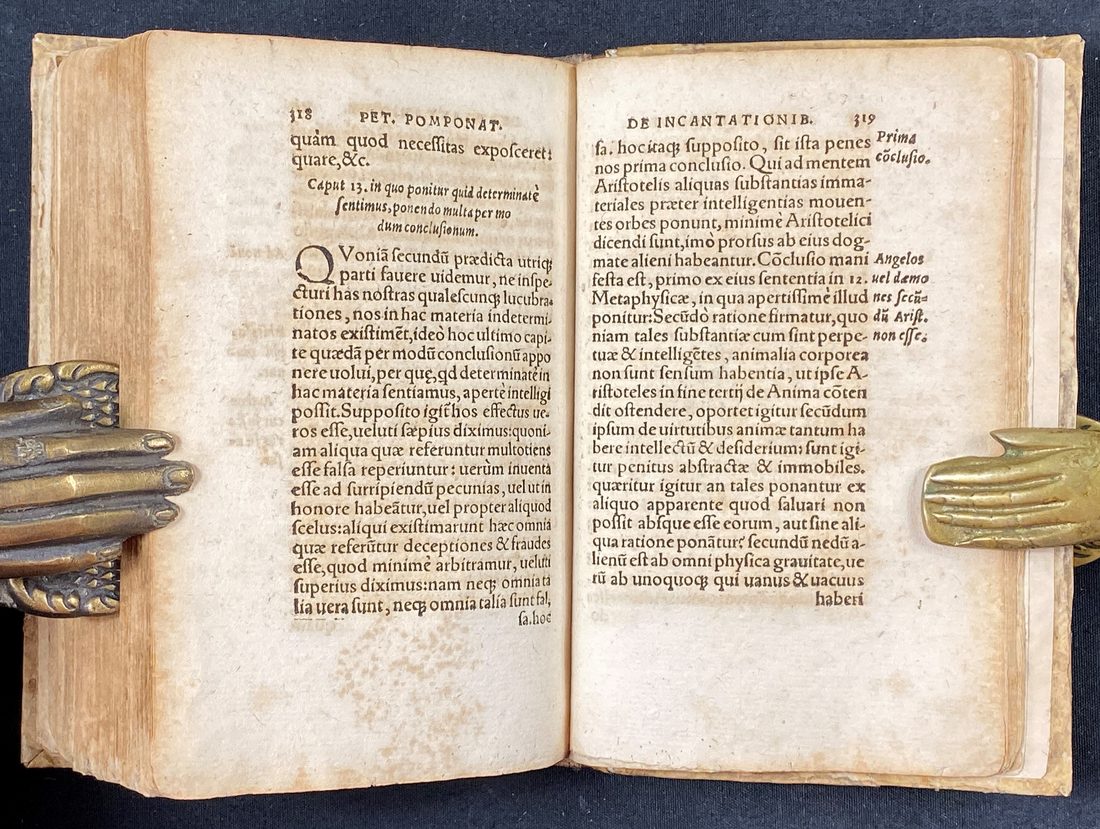 318 PET. POMPONAT.
quàm quod necessitas exposceret:
quare, &c.
Caput 13. in quo ponitur quid determinatè
sentimus, ponendo multa per mo
dum conclusionum.
QVoniã secundũ prædicta utriqꝫ
parti fauere uidemur, ne inspe-
cturi has nostras qualescunqꝫ lucubra-
tiones, nos in hac materia indetermi-
natos existimẽt, ideò hoc ultimo capi-
te quædã per modũ conclusionũ appo
nere uolui, per quę, qd determinatè in
hac materia sentiamus, apertè intelligi
possit. Supposito igit̃ hos effectus ue-
ros esse, ueluti sæpius diximus: quoni-
am aliqua quæ referuntur multotiens
esse falsa reperiuntur: uerùm inuenta
esse ad surripiendũ pecunias, uel ut in
honore habeãtur, uel propter aliquod
scelus: aliqui existimarunt hæc omnia
quæ referũtur deceptiones & fraudes
esse, quod minimè arbitramur, ueluti
superius diximus: nam neqꝫ omnia ta
lia uera sunt, neqꝫ omnia talia sunt fal,
sa. hoc
DE INCANTATIONIB. 319
sa. hoc itaqꝫ supposito, sit ista penes
nos prima conclusio. Qui ad mentem
Aristotelis aliquas substantias imma-
teriales præter intelligentias mouen-
tes orbes ponunt, minimè Aristotelici
dicendi sunt, imò prorsus ab eius dog-
mate alieni habeantur. Cõclusio mani
festa est, primo ex eius sententia in 12.
Metaphysicæ, in qua apertissimè illud
ponitur: Secũdò ratione firmatur, quo
niam tales substantiæ cum sint perpe-
tuæ & intelligẽtes, animalia corporea
non sunt sensum habentia, ut ipse A-
ristoteles in fine tertij de Anima cõten
dit ostendere, oportet igitur secũdum
ipsum de uirtutibus animæ tantum ha
bere intellectũ & desiderium: sunt igi-
tur penitus abstractæ & immobiles.
quæritur igitur an tales ponantur ex
aliquo apparente quod saluari non
possit absque esse eorum, aut sine ali-
qua ratione ponãtur: secundũ nedũ a-
lienũ est ab omni physica grauitate, ue
rũ ab unoquoqꝫ qui uanus & uacuus
haberi
Prima
cõclusio.
Angelos
uel dæmo
nes secũ-
dũ Arist.
non esse.